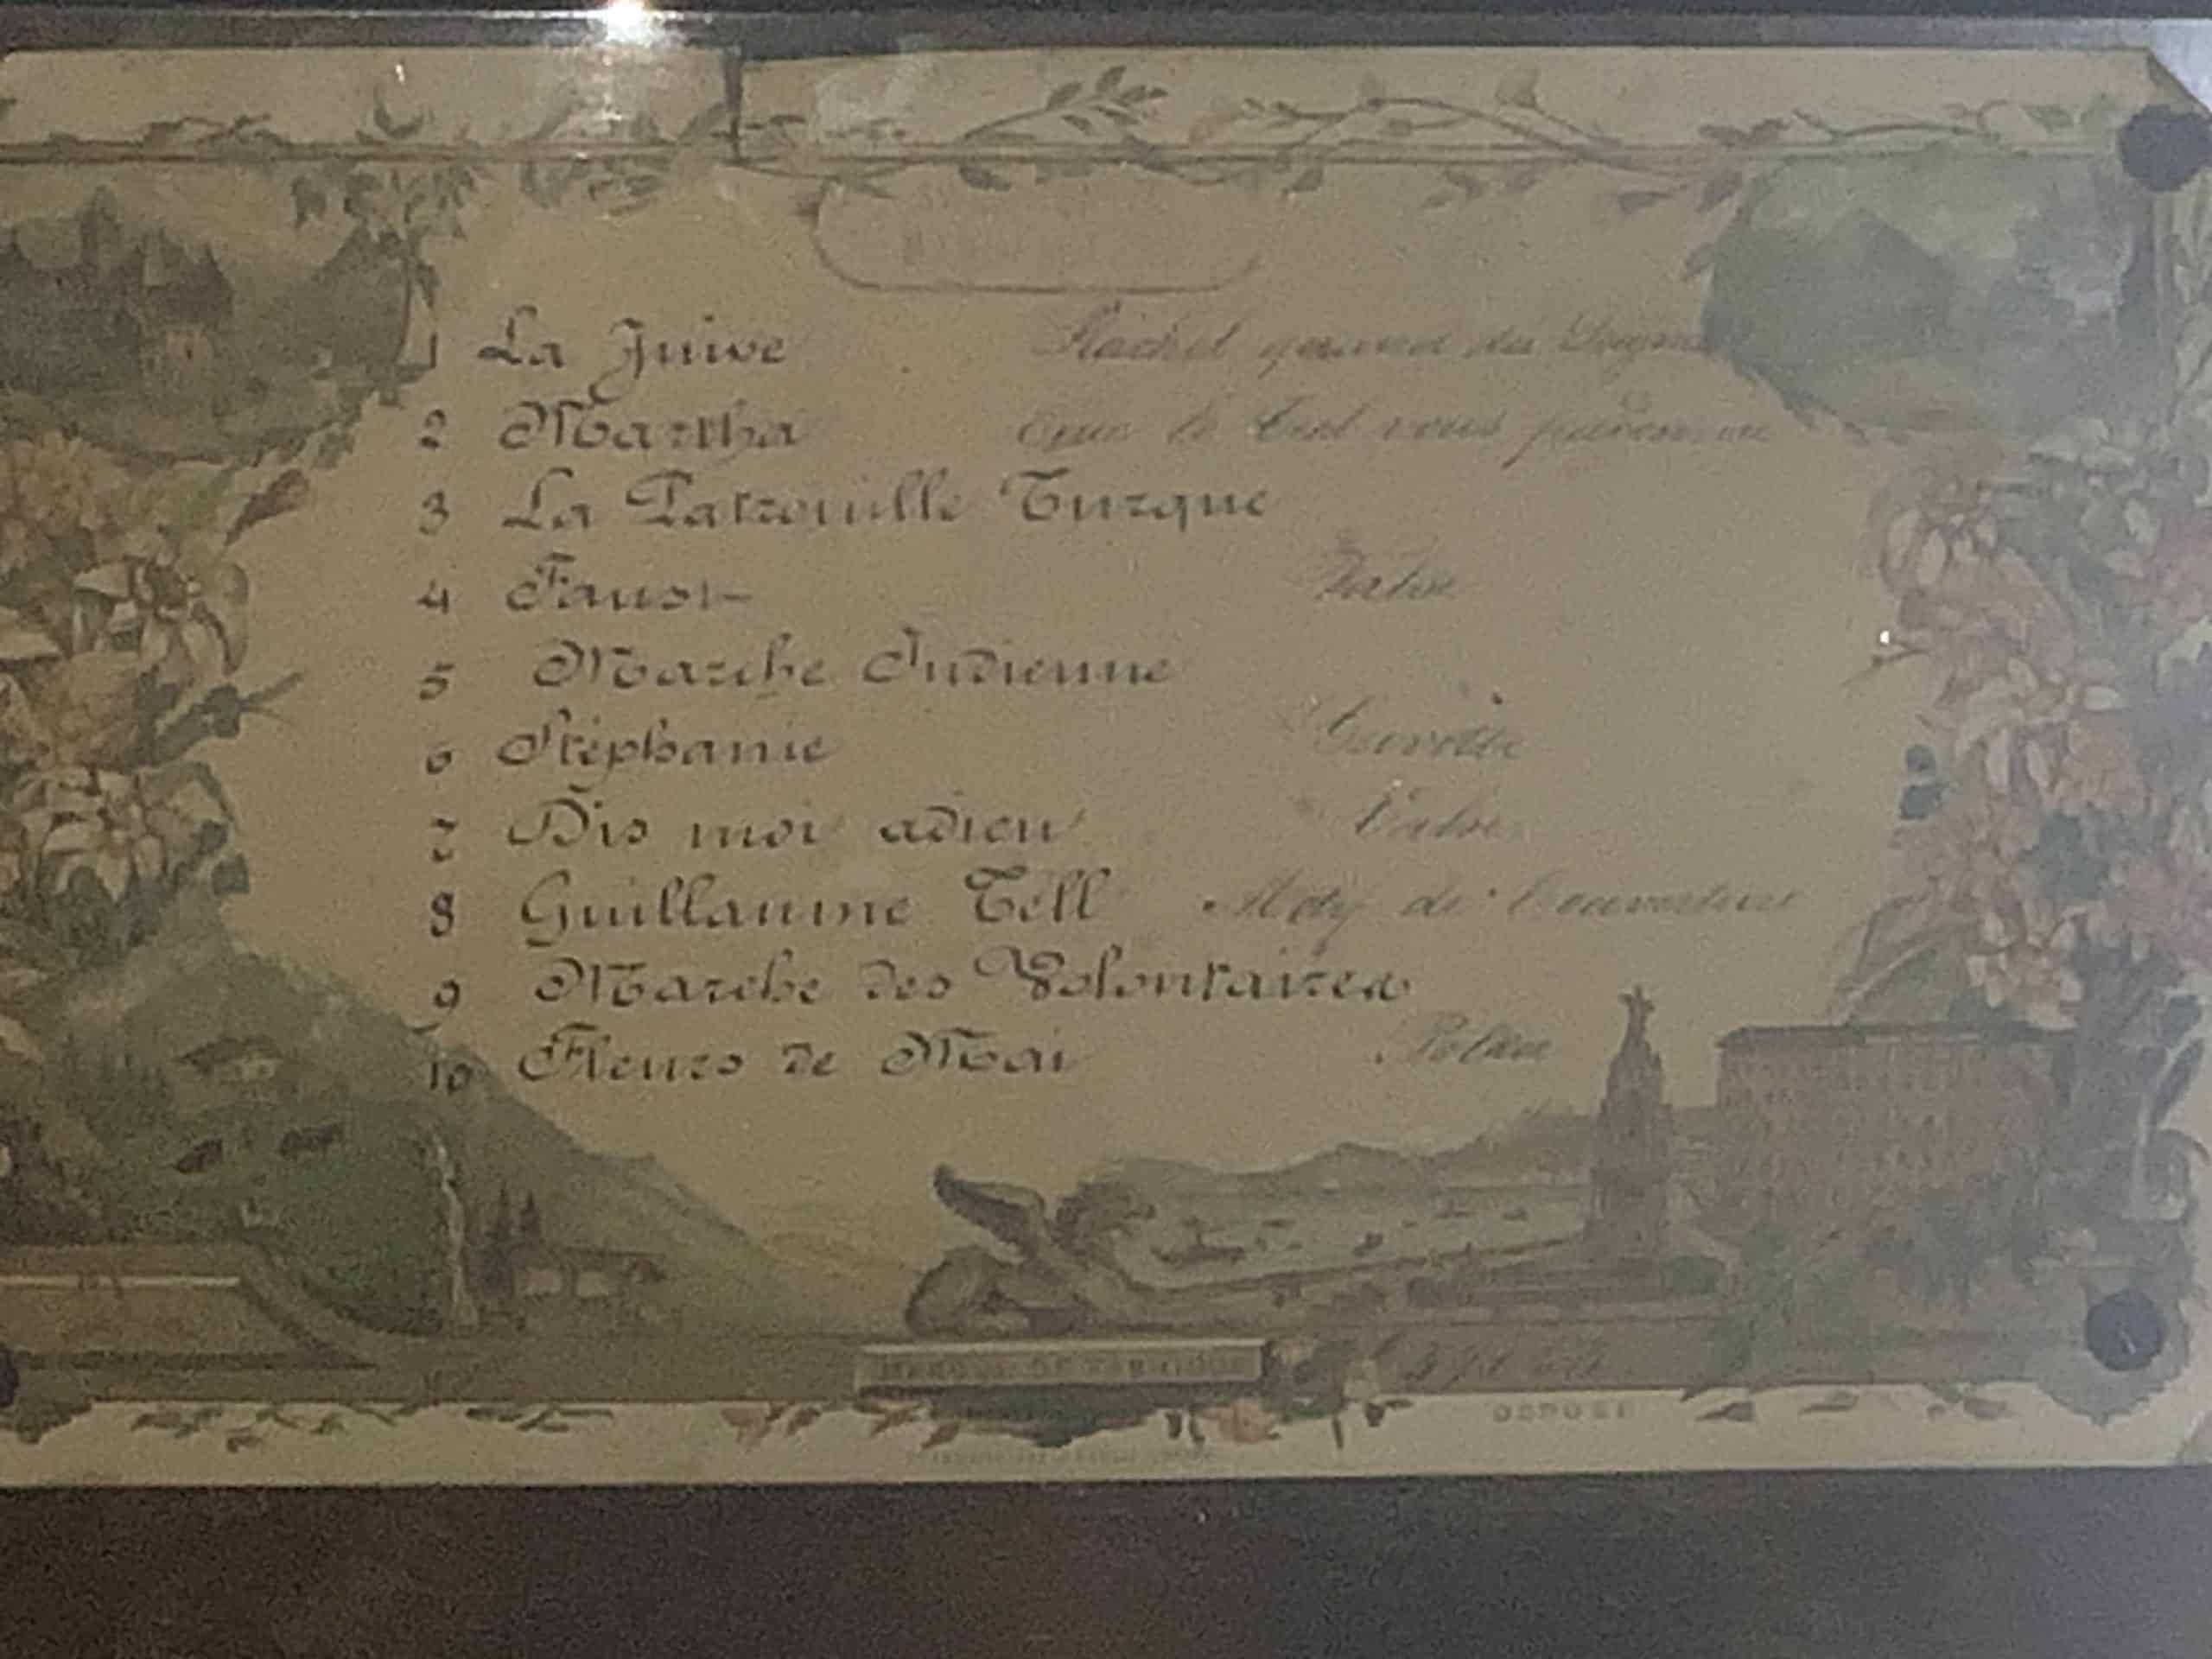 1 La Juive Rachel quand du Seigneur
2 Martha Que le Ciel vous pardonne
3 La Patrouille Turque
4 Faust Valse
5 Marche Indienne
6 Stéphanie Gavotte
7 Dis moi adieu Valse
8 Guillaume Tell de l'ouverture
9 Marche des Volontaires
10 Fleurs de Mai Polka
MARQUE DE FABRIQUE
DEPOSÉ